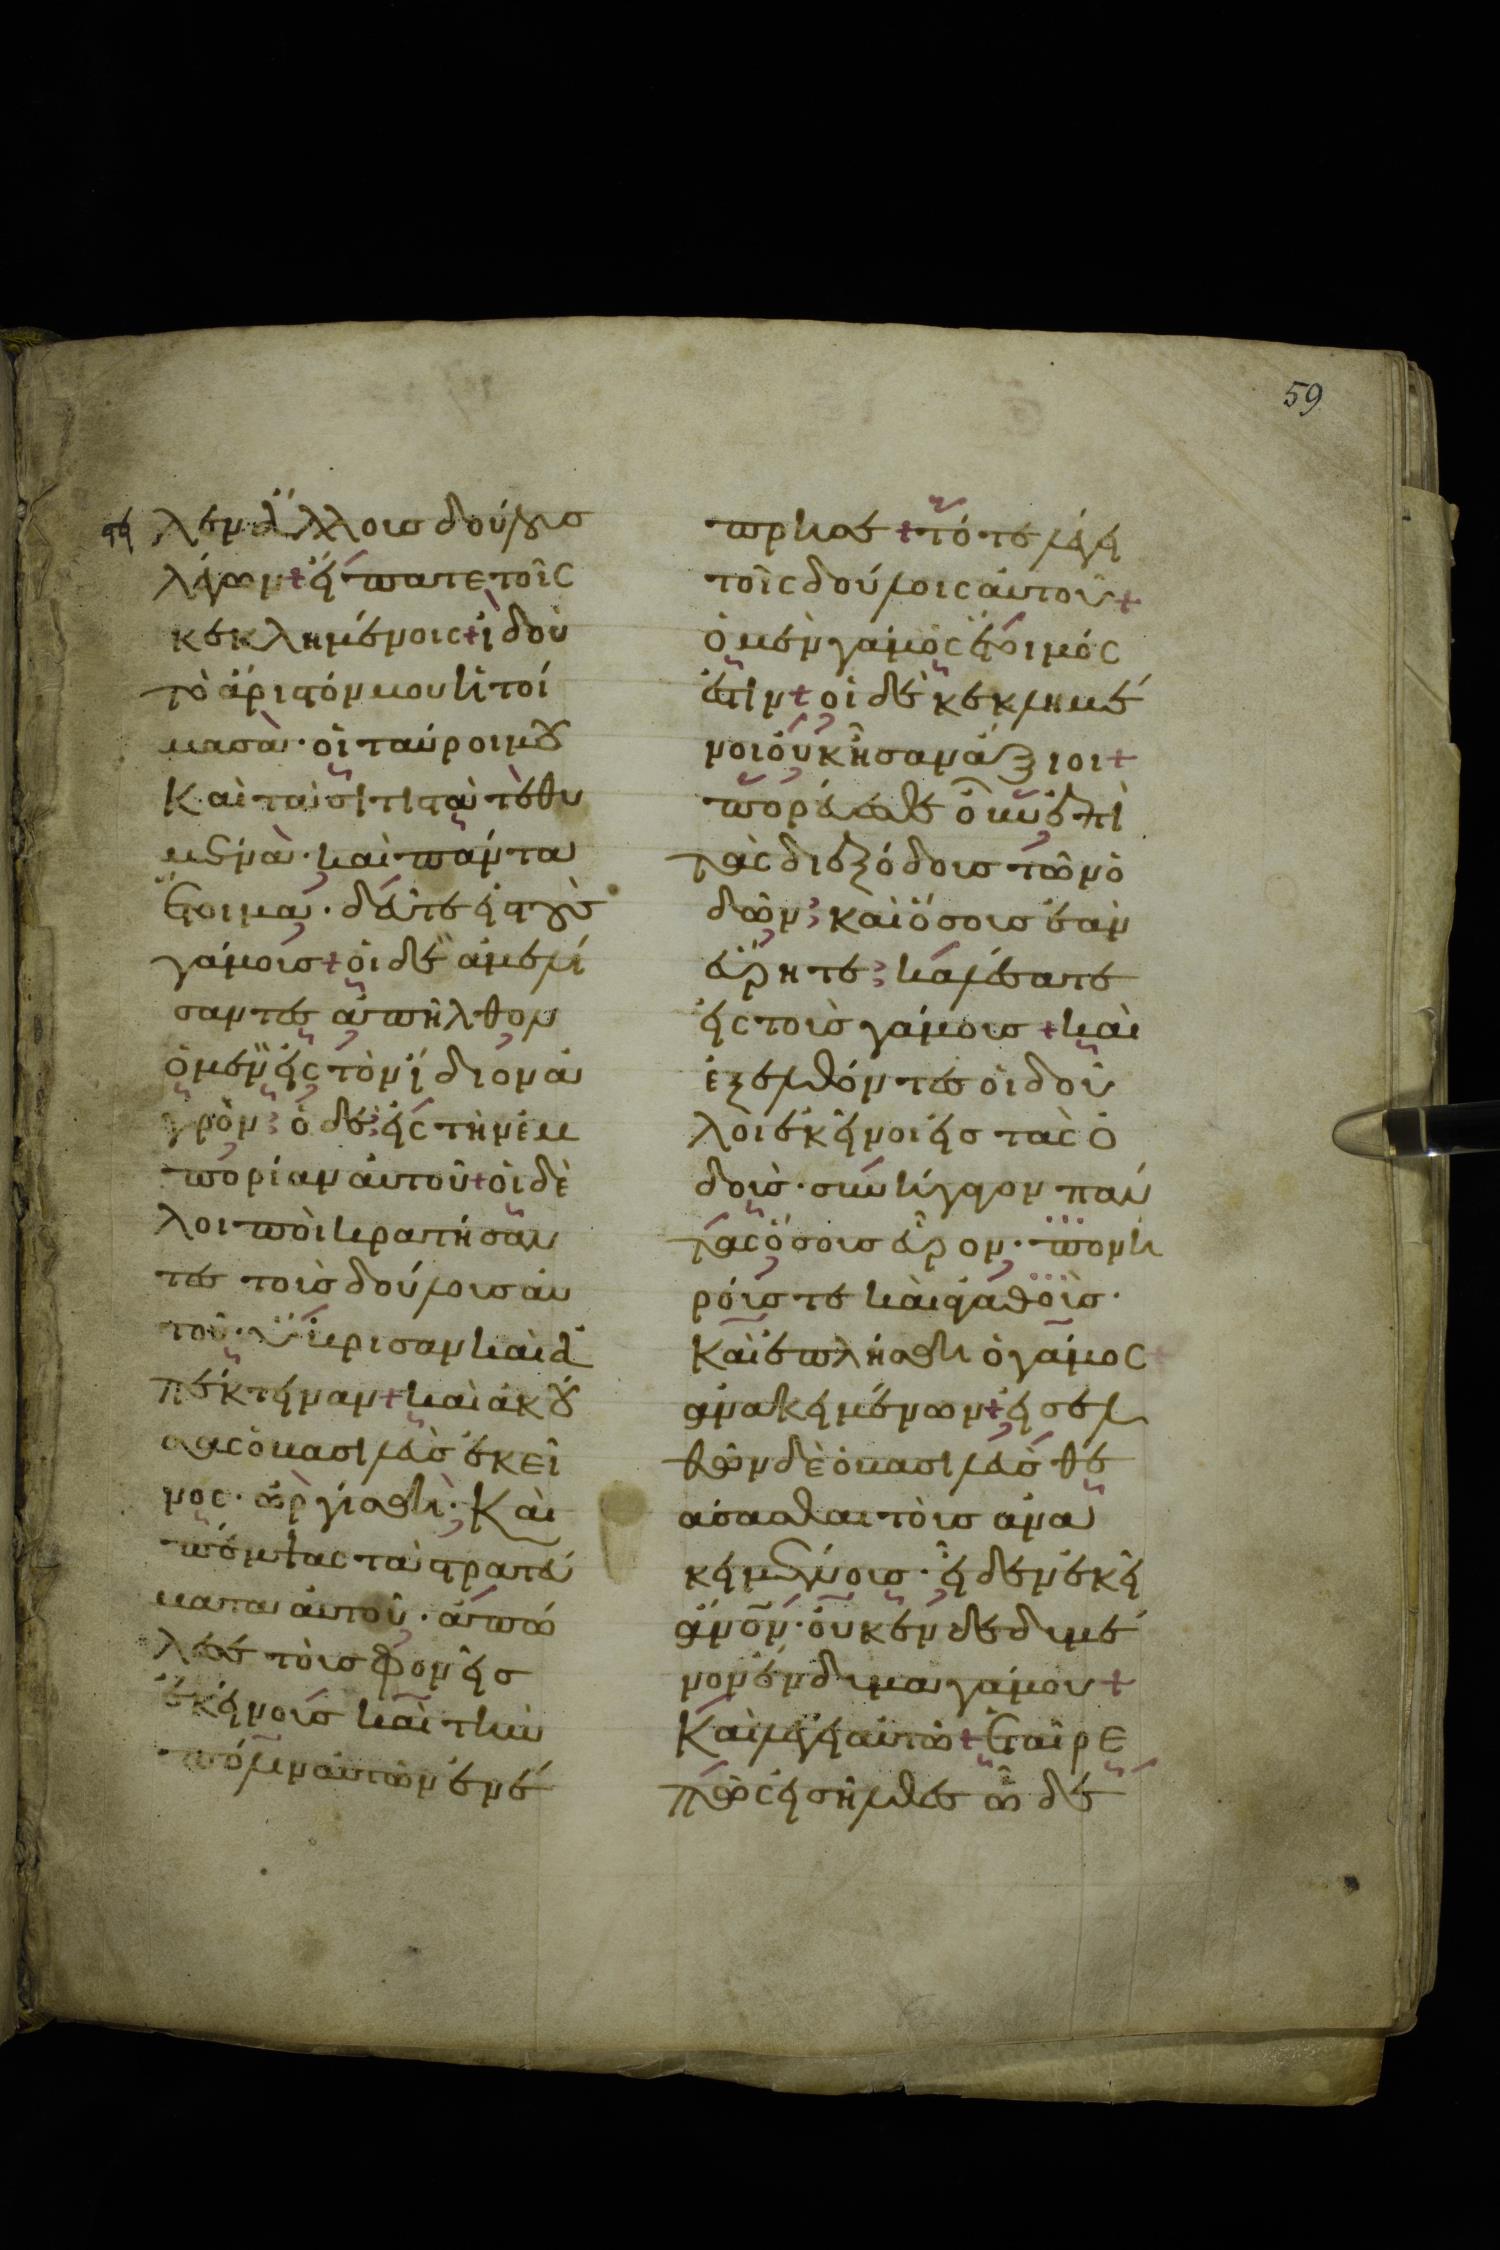 59
λεν ἄλλους δούλους
λέγων + εἴπατε τοῖς
κεκλημένοις + ἰδοὺ
τὸ ἄριστόν μου ἡτοί
μασα · οἱ ταῦροι μου
Καὶ τὰ σιτιστὰ τεθυ
μένα · καὶ πάντα
ἕτοιμα · δεῦτε εἰς τοὺς
γάμους + οἱ δὲ ἀμελή
σαντες ἀπῆλθον
ὁ μὲν εἰς τὸν ἴδιον ἀ
γρόν · ὁ δὲ εἰς τὴν ἐμ
πορίαν αὐτοῦ + οἱ δὲ
λοιποὶ κρατήσαν
τες τοὺς δούλους αὐ
τοῦ · ὕβρισαν καὶ ἀ
πέκτειναν + καὶ ἀκού
σας ὁ βασιλεὺς ἐκεῖ
νος · ὠργίσθη · Καὶ
πέμψας τὰ στρατεύ
ματα αὐτοῦ · ἀπώ
λεσε τοὺς φονεῖς
ἐκείνους καὶ τὴν
πόλιν αὐτῶν ἐνέ
πρησε + τότε λέγει
τοῖς δούλοις αὐτοῦ +
ὁ μὲν γάμος ἕτοιμός
ἐστιν + οἱ δὲ κεκλημέ
νοι οὐκ ἦσαν ἄξιοι +
πορεύεσθε οὖν ἐπὶ
τὰς διεξόδους τῶν ὁ
δῶν · καὶ ὅσους ἐὰν
εὕρητε · καλέσατε
εἰς τοὺς γάμους + καὶ
ἐξελθόντες οἱ δοῦ
λοι ἐκεῖνοι εἰς τὰς ὁ
δοὺς · συνήγαγον πάν
τας ὅσους εὗρον · πονη
ρούς τε καὶ ἀγαθοὺς ·
Καὶ ἐπλήσθη ὁ γάμος
ἀνακειμένων + εἰσελ
θὼν δὲ ὁ βασιλεὺς θε
άσασθαι τοὺς ἀνα
κειμένους · εἶδεν ἐκεῖ
ἄνον · οὐκ ἐνδεδυμέ
νον ἔνδυμα γάμου +
Καὶ λέγει αὐτῷ + Ἑταῖρε
πῶς εἰσῆλθες ὧδε